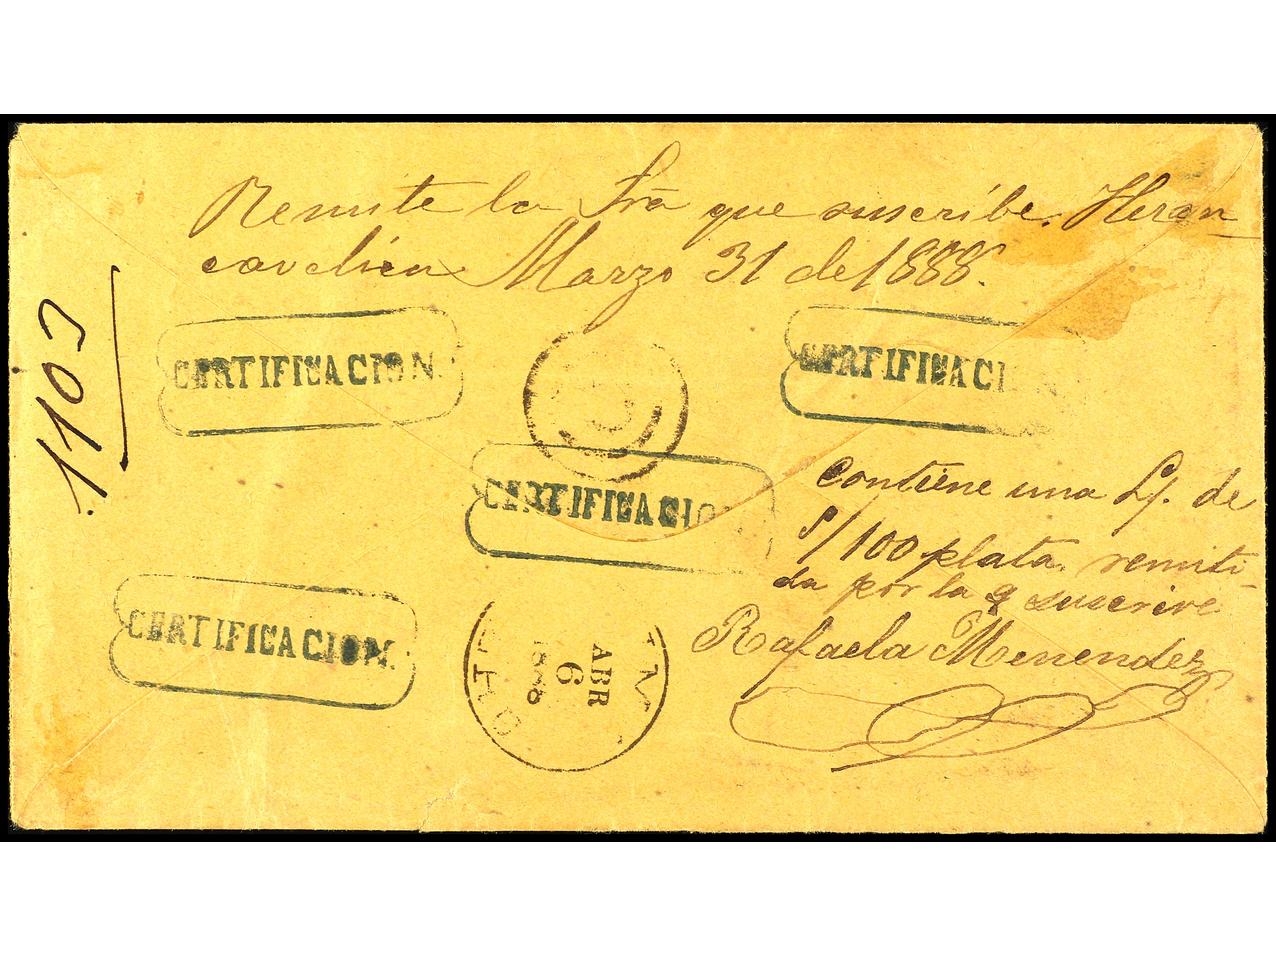 Remite la Sra que suscribe. Heran
cavelicu Marzo 31 de 1888.
1103
CERTIFICACION.
CERTIFICACION
CERTIFICACION
CERTIFICACION.
ABR
6
1888
contiene una L/. de
S/100 plata. remiti-
da por la q suscrive
Rafaela Menendez